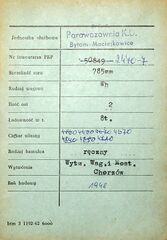 Jednostka służbowa Parowozownia K.D.
Bytom Maciejkowice
Nr inwentarza PKP 50849 2470-7
Szerokość toru 785mm
Rodzaj wagonu Wh
Ilość osi 2
Ładowność w t. 8t.
Ciężar własny 4700 4700 4670 4670
Rodzaj hamulca ręczny
Wytwórnia Wytw. Wag.i Most.
Chorzów
Rok budowy 1948